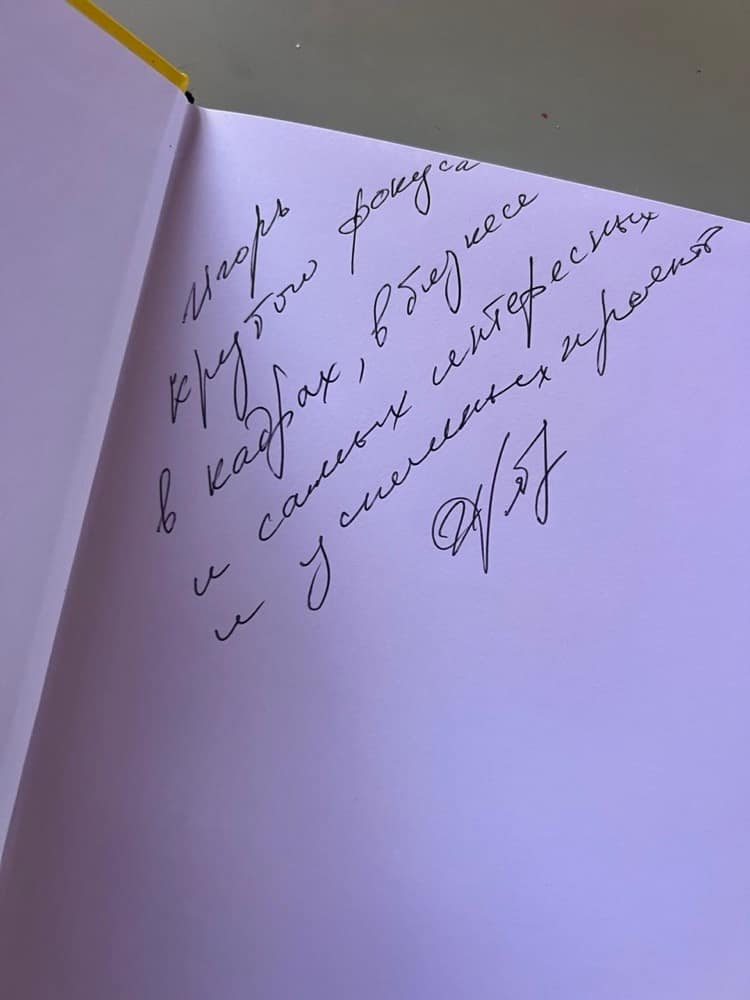 Игорь
крутого фокуса
в кадрах, в бизнесе
и самых интересных
и успешных проектов